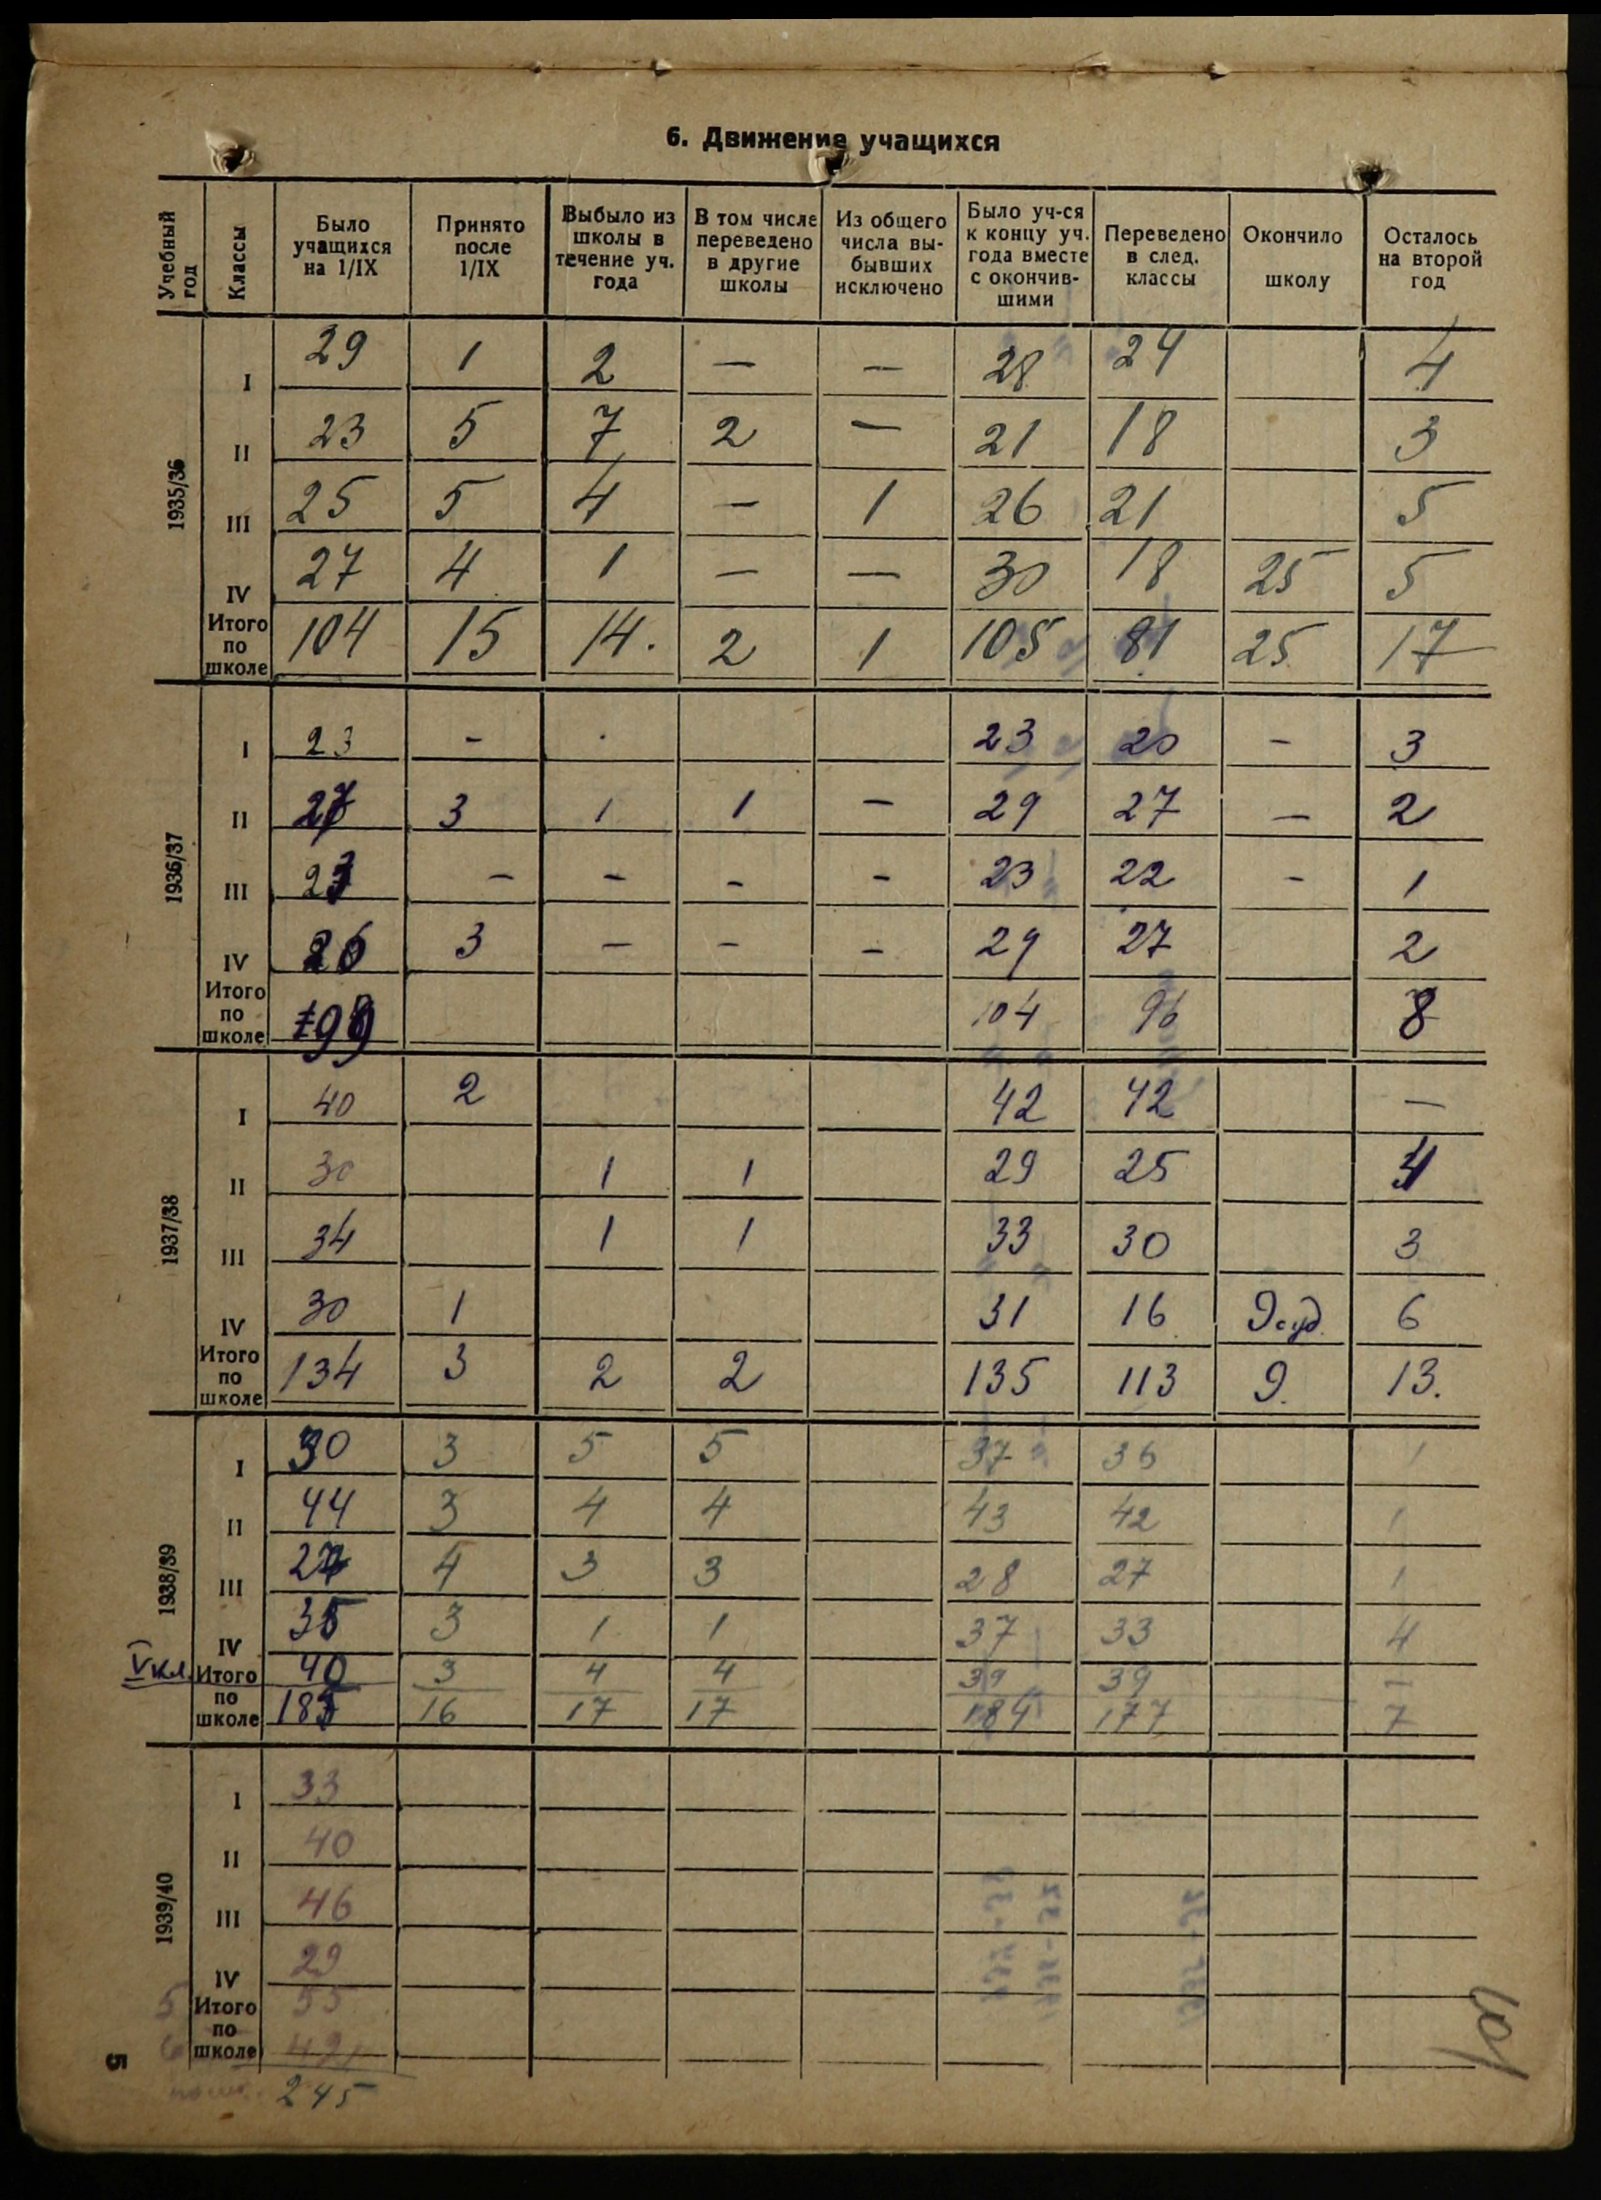 6. Движение учащихся
Учебный год | Классы | Было учащихся на 1/IX | Принято после 1/IX | Выбыло из школы в течение уч. года | В том числе переведено в другие школы | Из общего числа вы-бывших исключено | Было уч-ся к концу уч. года вместе с окончив-шими | Переведено в след. классы | Окончило школу | Осталось на второй год
1935/36
I 29 1 2 — — 28 24 4
II 23 5 7 2 — 21 18 3
III 25 5 4 — 1 26 21 5
IV 27 4 1 — — 30 18 25 5
Итого по школе 104 15 14. 2 1 105 81 25 17
1936/37
I 23 - 23 20 - 3
II 27 3 1 1 — 29 27 — 2
III 23 - - - - 23 22 - 1
IV 26 3 — - - 29 27 2
Итого по школе 99 104 96 8
1937/38
I 40 2 42 42 —
II 30 1 1 29 25 4
III 34 1 1 33 30 3
IV 30 1 31 16 9 6
Итого по школе 134 3 2 2 135 113 9. 13.
1938/39
I 30 3 5 5 37 36 1
II 44 3 4 4 43 42 1
III 27 4 3 3 28 27 1
IV 35 3 1 1 37 33 4
V кл. 40 3 4 4 39 39 -
Итого по школе 183 16 17 17 184 177 7
1939/40
I 33
II 40
III 46
IV 29
5 55
6 42
Итого по школе
245
5